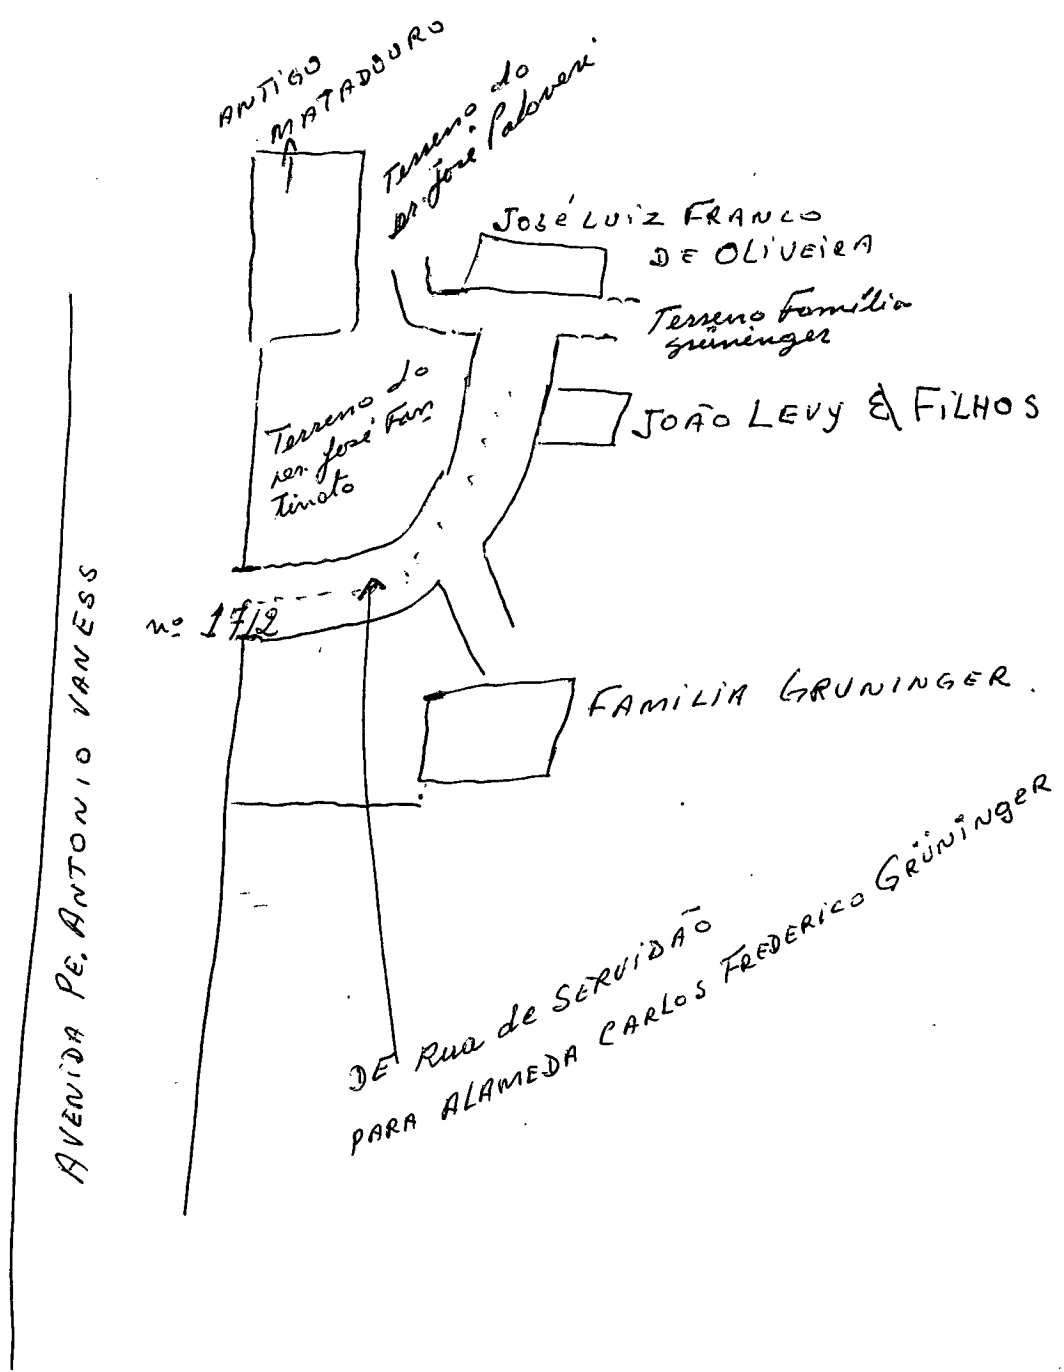 ANTIGO
MATADOURO
Terreno do
sr. José Paloveri
JOSÉ LUIZ FRANCO
DE OLIVEIRA
Terreno Família
Grüninger
Terreno do
sr. José Fan
tinato
JOÃO LEVY & FILHOS
nº 1712
FAMILIA GRUNINGER.
AVENIDA PE. ANTONIO VANESS
DE Rua de SERVIDÃO
PARA ALAMEDA CARLOS FREDERICO GRÜNINGER